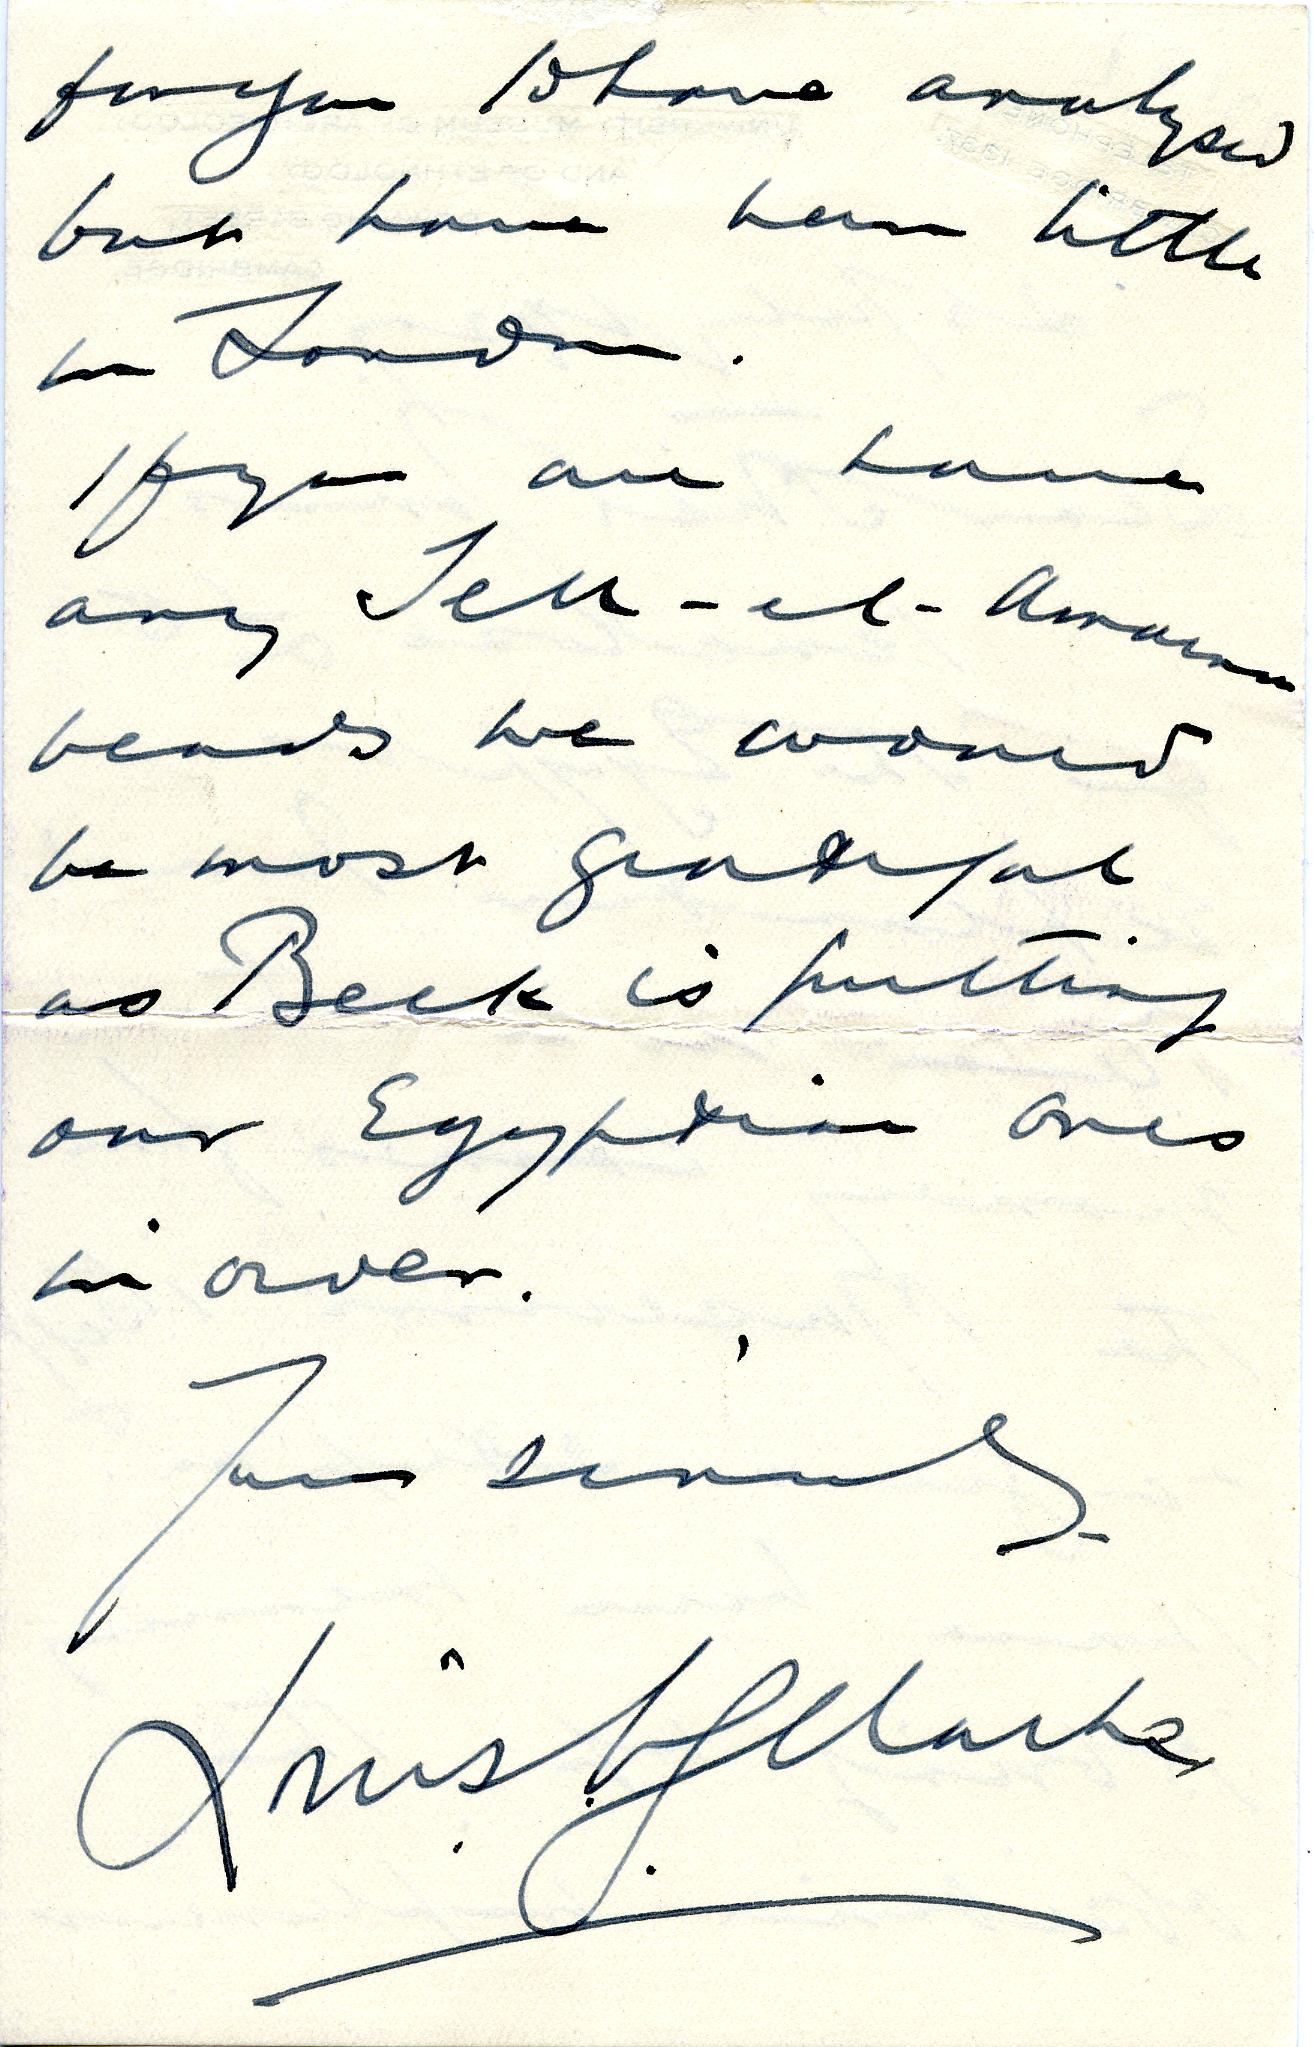 for you to have analysed
but have been little
in London.
If you can have
any Tell-el-Amarna
beads we would
be most grateful
as Beck is putting
our Egyptian ones
in order.
Yours sincerely
Louis C. G. Clarke